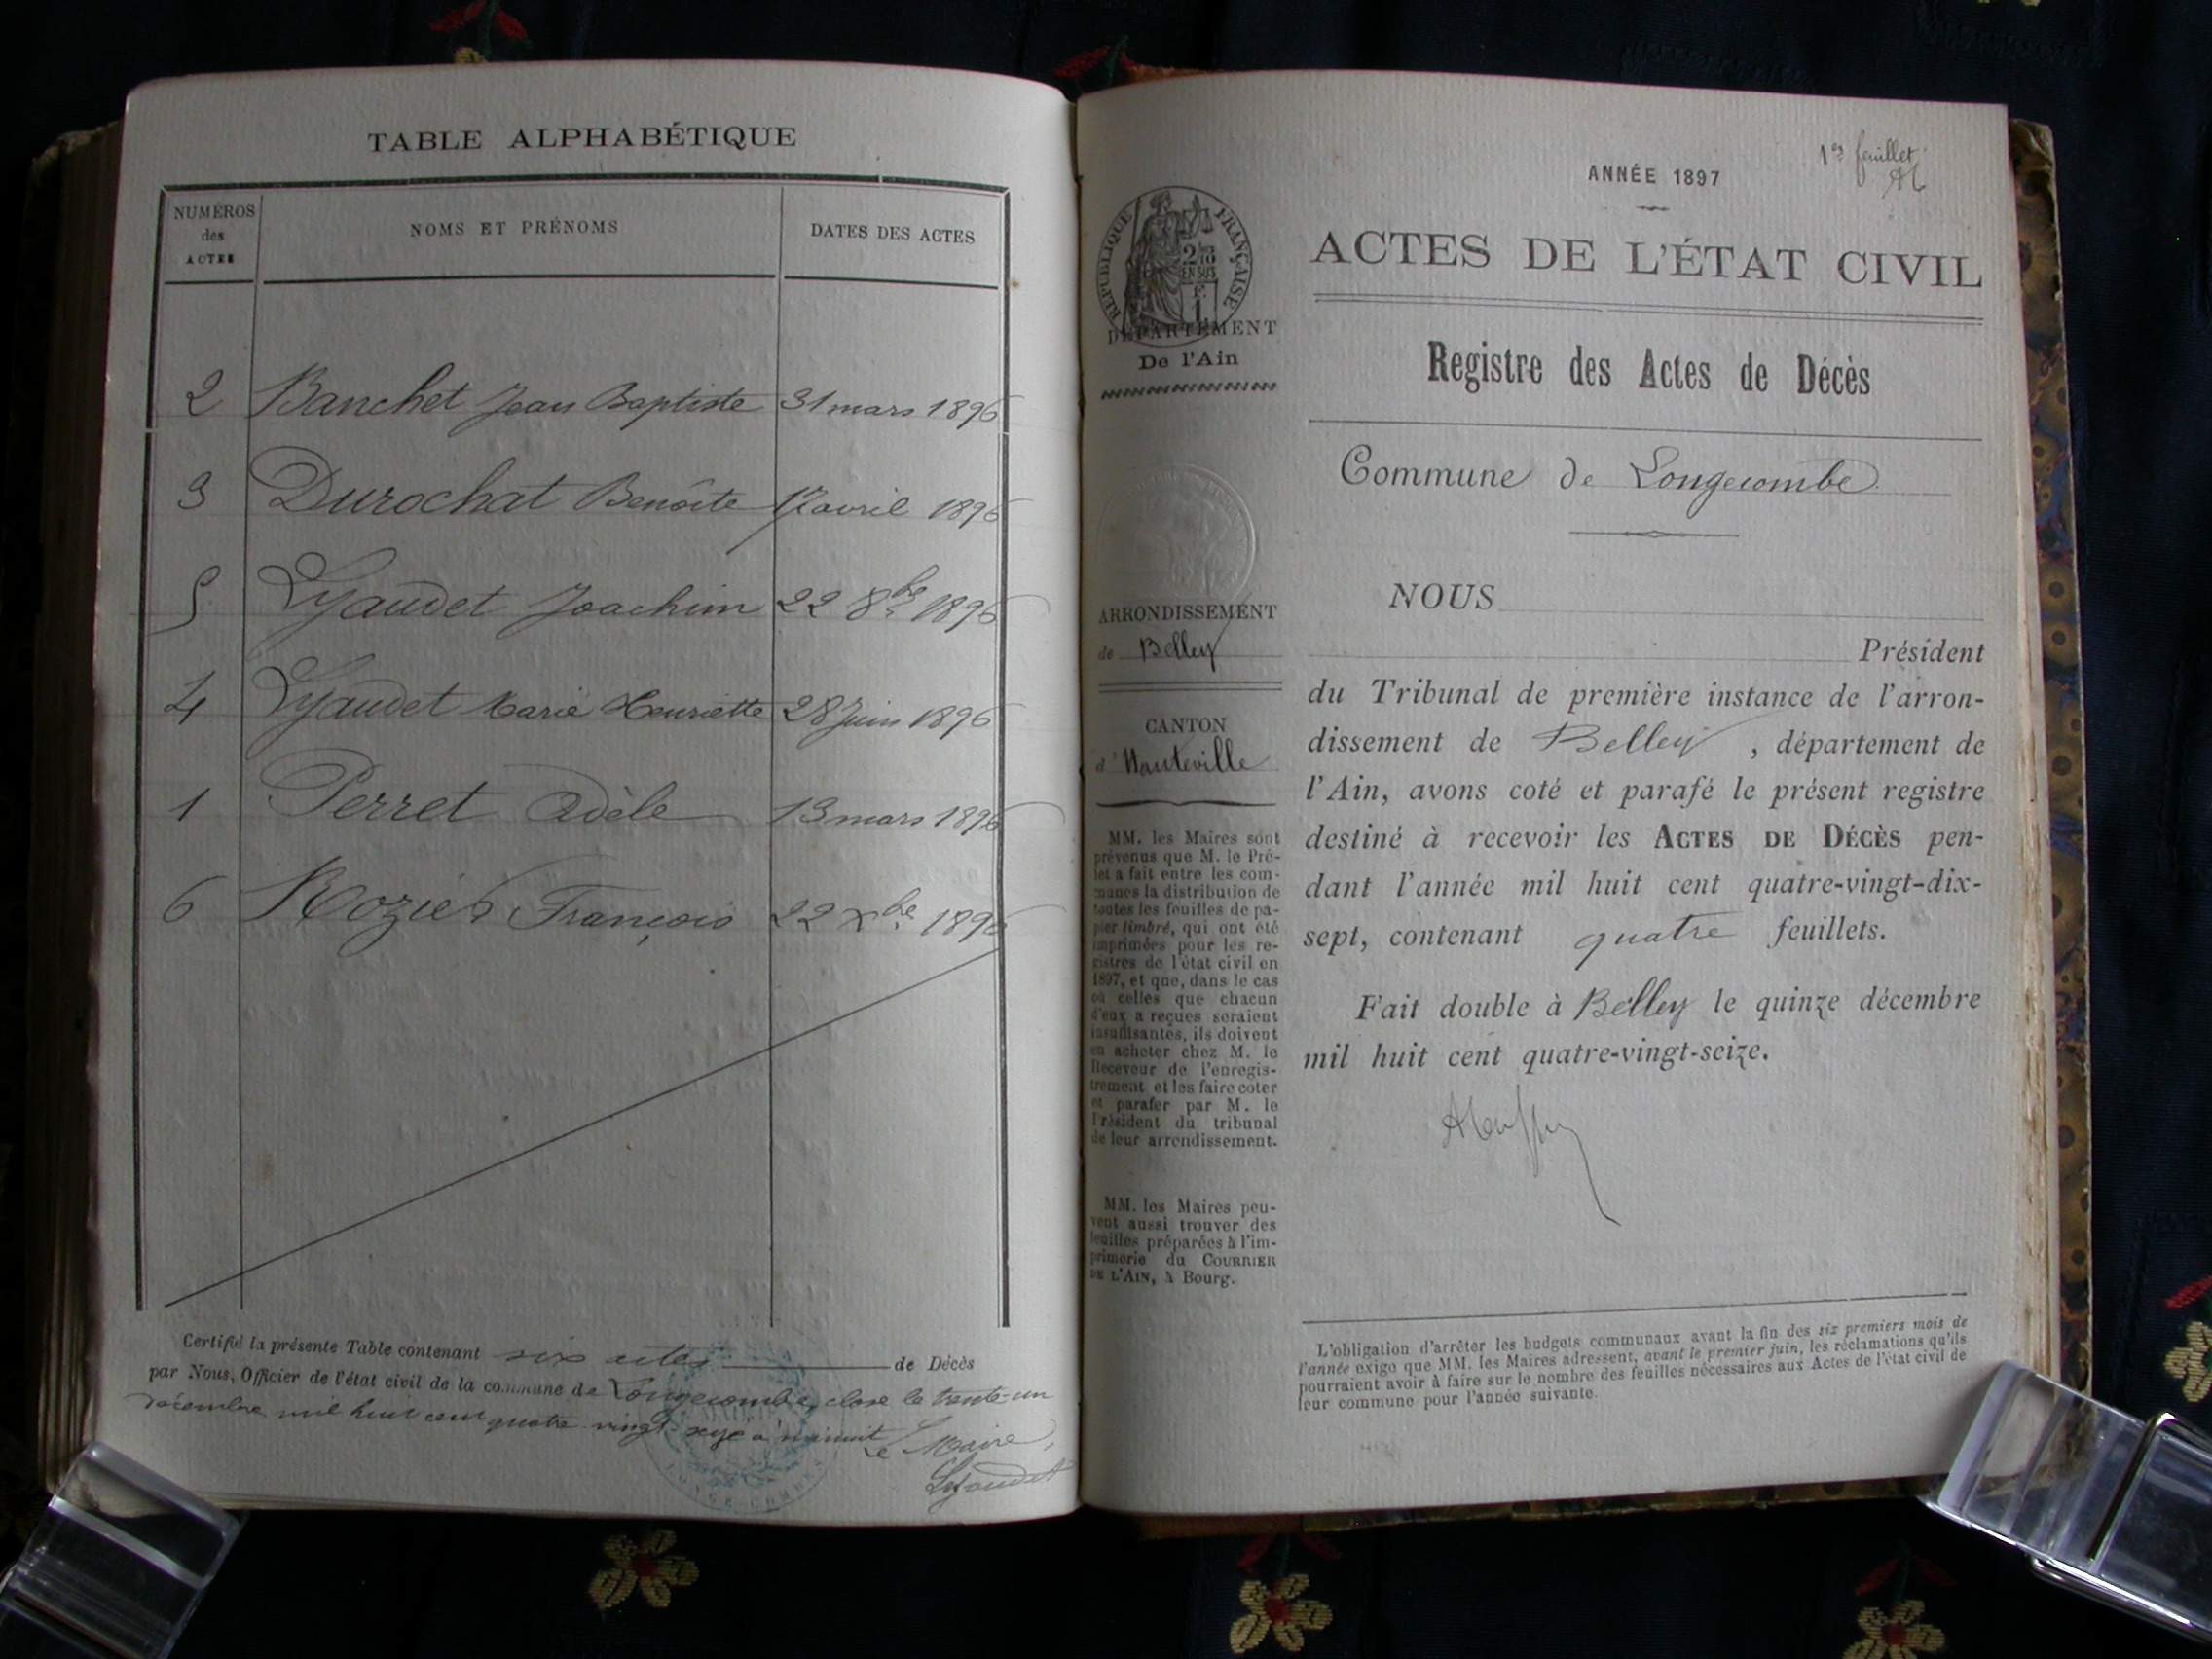 TABLE ALPHABÉTIQUE
NUMÉROS
des
ACTES
NOMS ET PRÉNOMS
DATES DES ACTES
2 Banchet Jean Baptiste 31 mars 1896
3 Durochat Benoîte 17 avril 1896
5 Lyaudet Joachim 22 8bre 1896
4 Lyaudet Marie Henriette 28 Juin 1896
1 Perret Adèle 13 mars 1896
6 Rozier François 22 Xbre 1896
Certifié la présente Table contenant six actes de Décès
par Nous, Officier de l'état civil de la commune de Longecombe, close le trente-un
décembre mil huit cent quatre vingt seize à minuit
Le Maire,
Lyaudet
1er feuillet
ANNÉE 1897
RÉPUBLIQUE FRANÇAISE
2/10
EN SUS
F.
1
ACTES DE L'ÉTAT CIVIL
DÉPARTEMENT
De l'Ain
Registre des Actes de Décès
Commune de Longecombe
ARRONDISSEMENT
de Belley
CANTON
d'Hauteville
MM. les Maires sont
prévenus que M. le Pré-
fet a fait entre les com-
munes la distribution de
toutes les feuilles de pa-
pier timbré, qui ont été
imprimées pour les re-
gistres de l'état civil en
1897, et que, dans le cas
où celles que chacun
d'eux a reçues seraient
insuffisantes, ils doivent
en acheter chez M. le
Receveur de l'enregis-
trement et les faire coter
et parafer par M. le
Président du tribunal
de leur arrondissement.
MM. les Maires peu-
vent aussi trouver des
feuilles préparées à l'im-
primerie du COURRIER
DE L'AIN, à Bourg.
NOUS
Président
du Tribunal de première instance de l'arron-
dissement de Belley, département de
l'Ain, avons coté et parafé le présent registre
destiné à recevoir les ACTES DE DÉCÈS pen-
dant l'année mil huit cent quatre-vingt-dix-
sept, contenant quatre feuillets.
Fait double à Belley le quinze décembre
mil huit cent quatre-vingt-seize.
L'obligation d'arrêter les budgets communaux avant la fin des six premiers mois de
l'année exige que MM. les Maires adressent, avant le premier juin, les réclamations qu'ils
pourraient avoir à faire sur le nombre des feuilles nécessaires aux Actes de l'état civil de
leur commune pour l'année suivante.